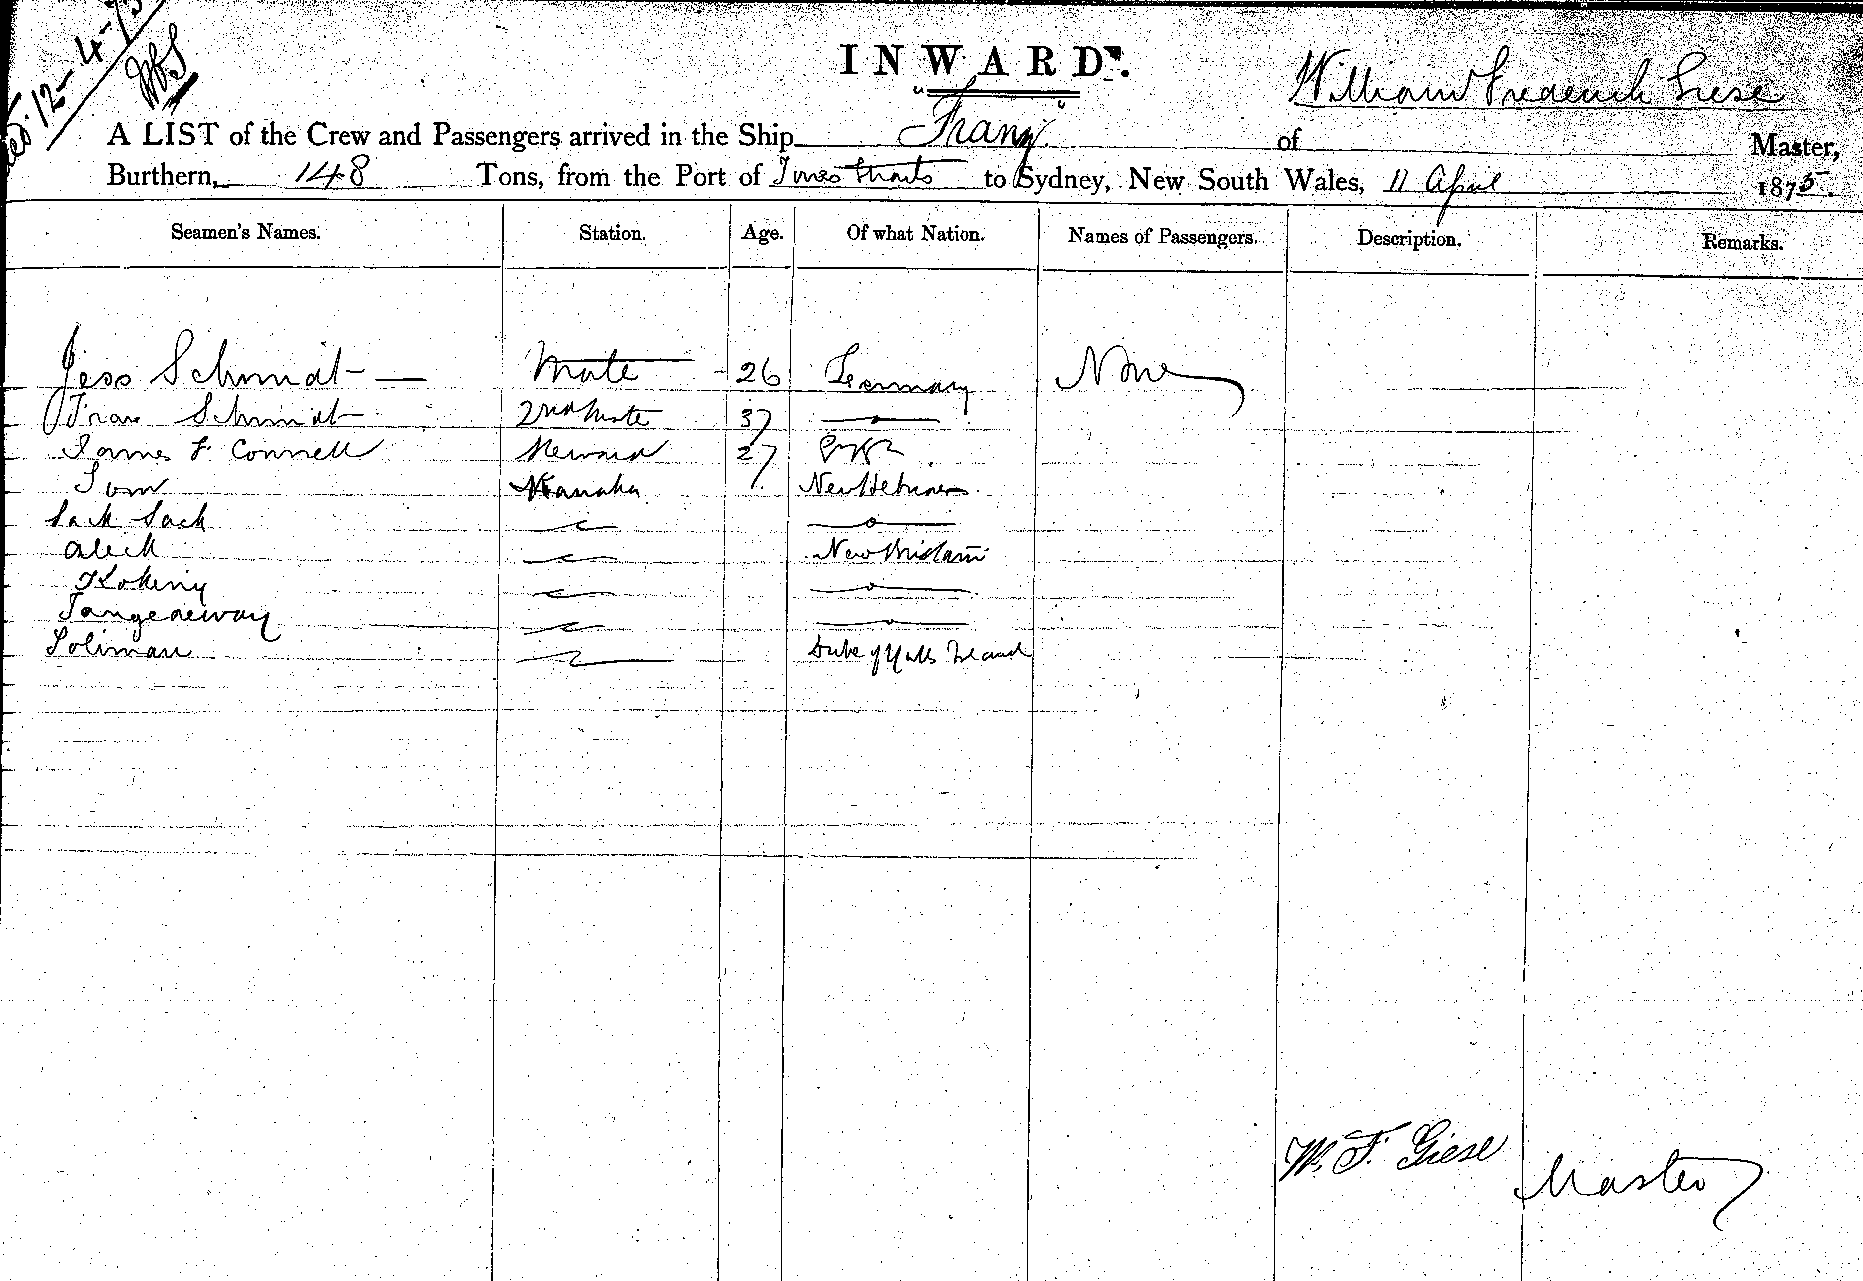 12-4-75
INWARD.
William Frederick Giese
A LIST of the Crew and Passengers arrived in the Ship "Franz" of Master,
Burthern, 148 Tons, from the Port of Torres Straits to Sydney, New South Wales, 11 April 1875.
Seamen's Names. Station. Age. Of what Nation. Names of Passengers. Description. Remarks.
Jess Schmidt Mate 26 Germany None
Schmidt 2nd Mate 37
James F. Connell Steward 27
Tom Kanaka New Hebrides
Jack Jack
Aleck New Britain
Tangeneway
Soliman Duke of York Island
W. F. Giese
Master